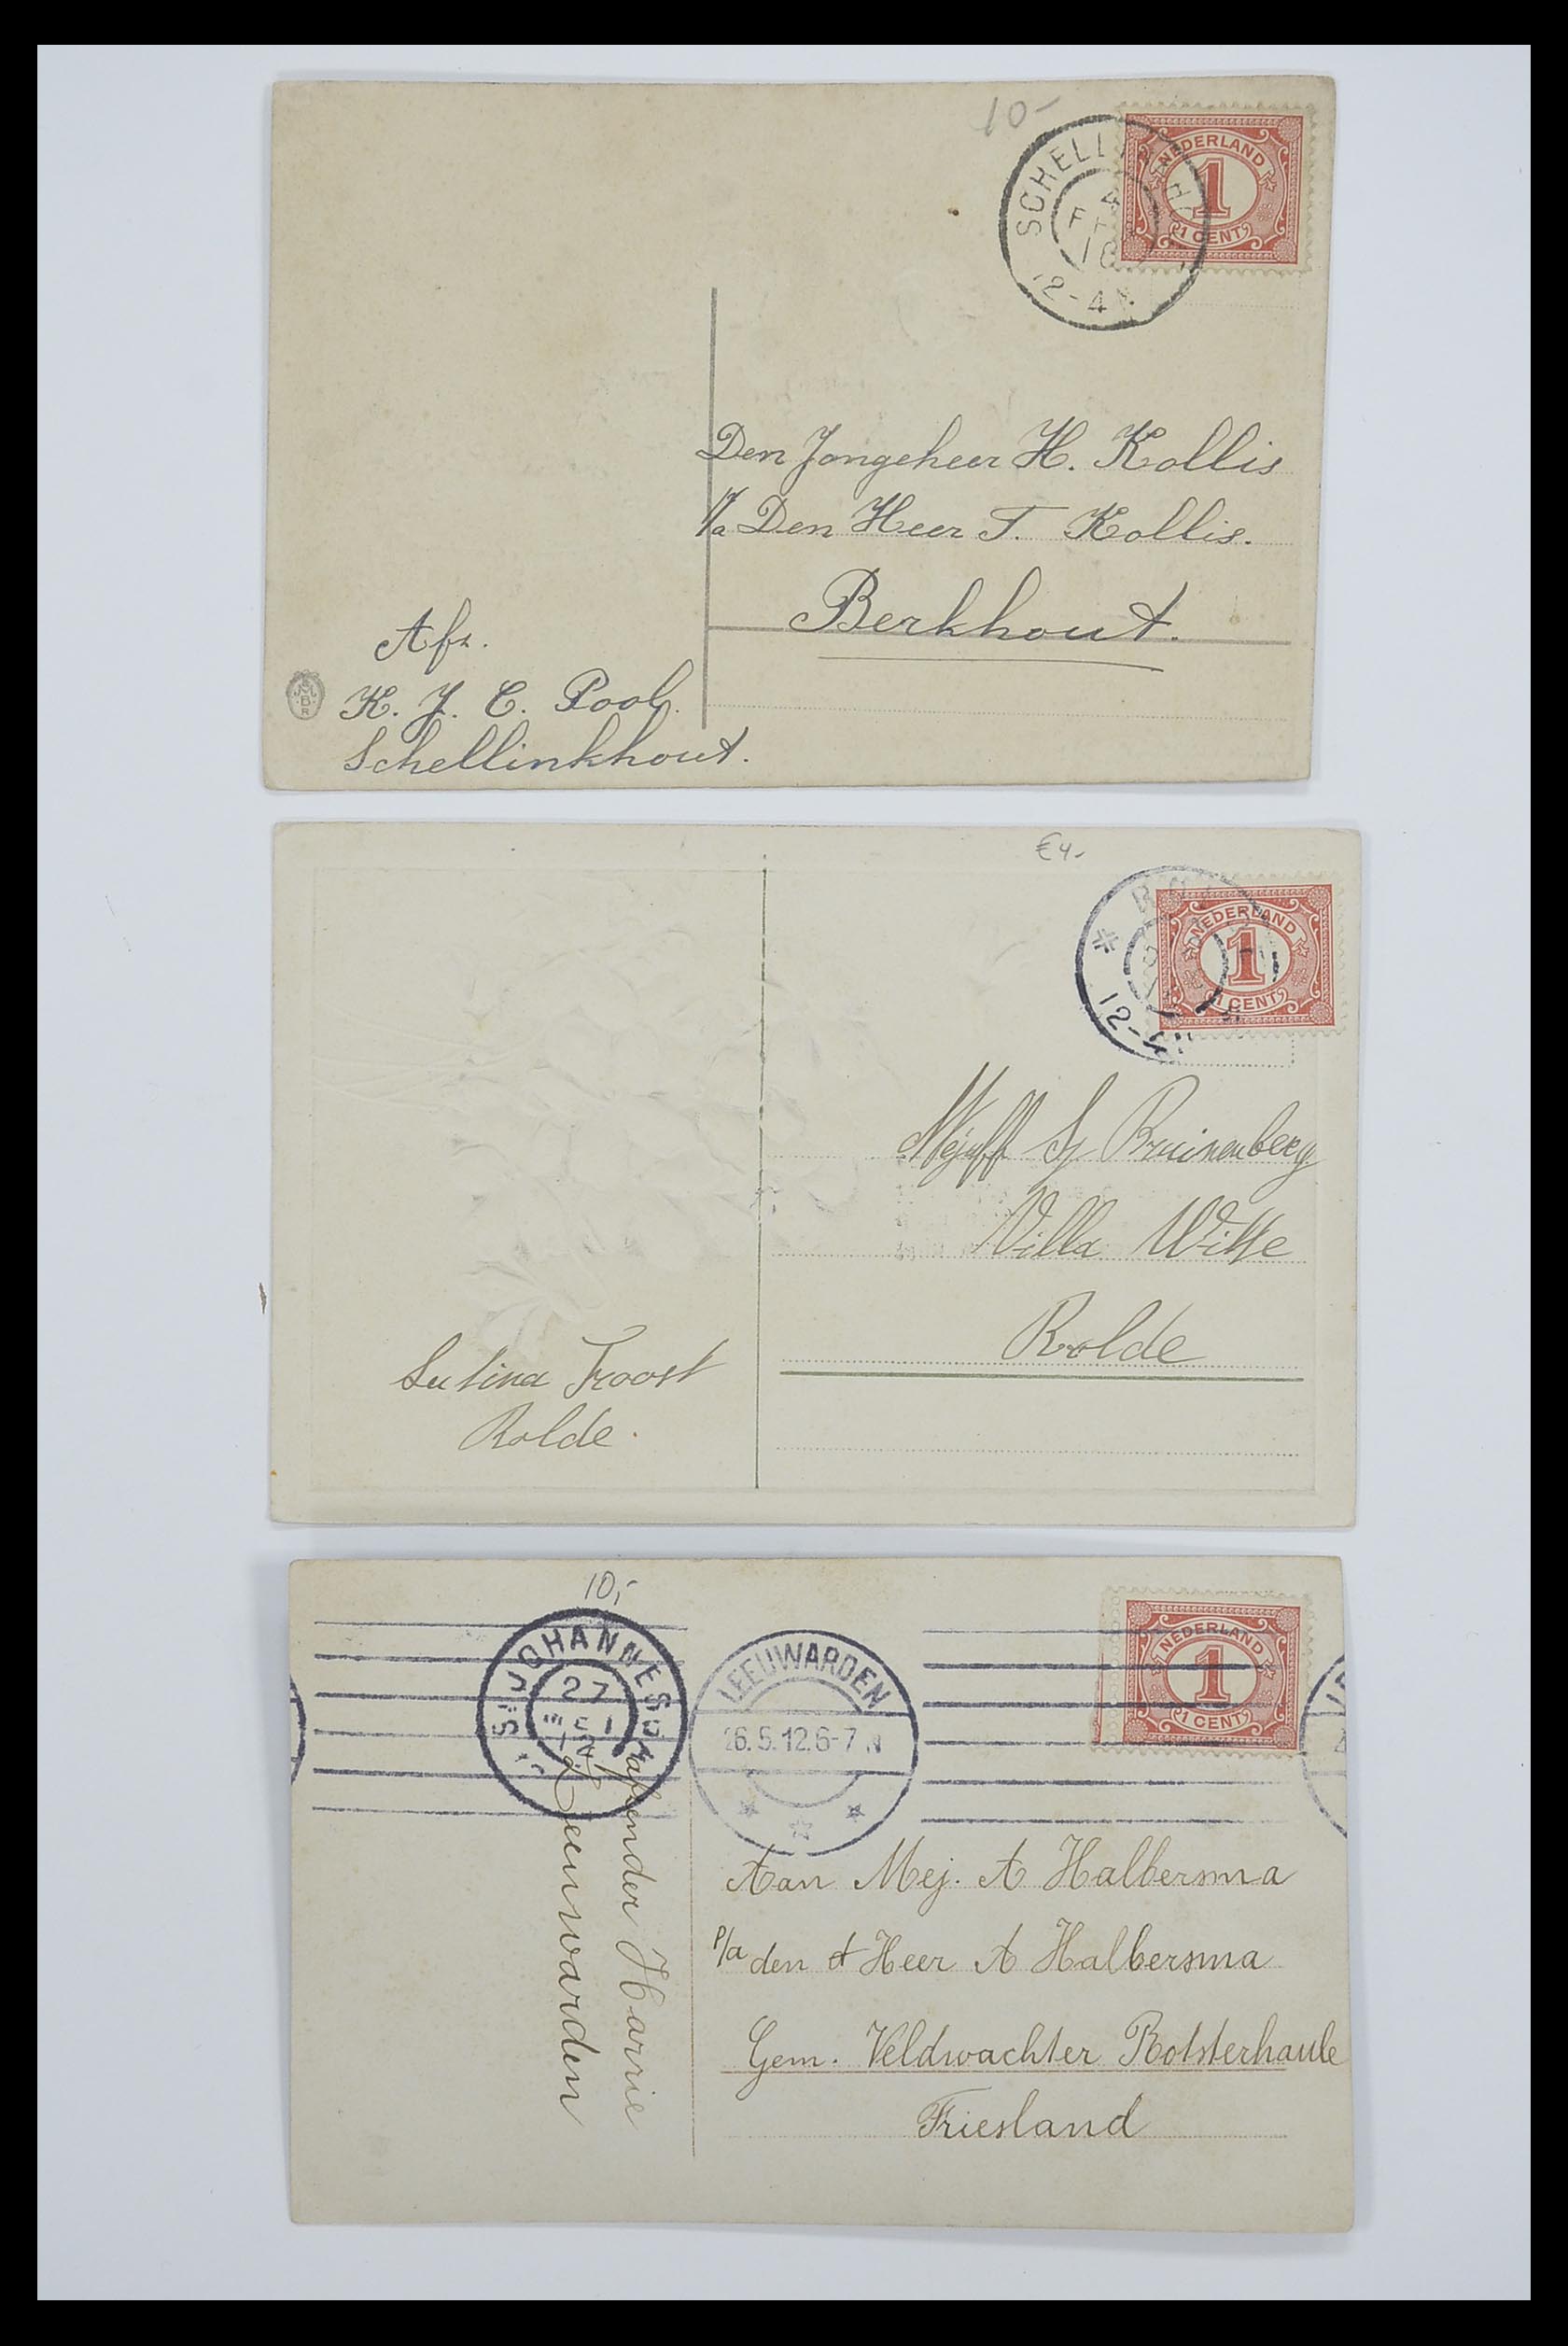 10-
NEDERLAND
1
1 CENT
4
12-4
Den Jongeheer H. Kollis
P/a Den Heer T. Kollis.
Berkhout.
Afz.
K. J. C. Pool.
Schellinkhout.
€4,-
NEDERLAND
1
1 CENT
12-4
Mejuff Sj Bruinenberg
Villa Witte
Rolde
Lutina Troost
Rolde.
10,-
St JOHANNESGA
27
MEI
LEEUWARDEN
26.5.12.6-7 N
NEDERLAND
1
1 CENT
afzender Harrie
Leeuwarden
Aan Mej. A Halbersma
P/a den Heer A Halbersma
Gem. Veldwachter Rotsterhaule
Friesland